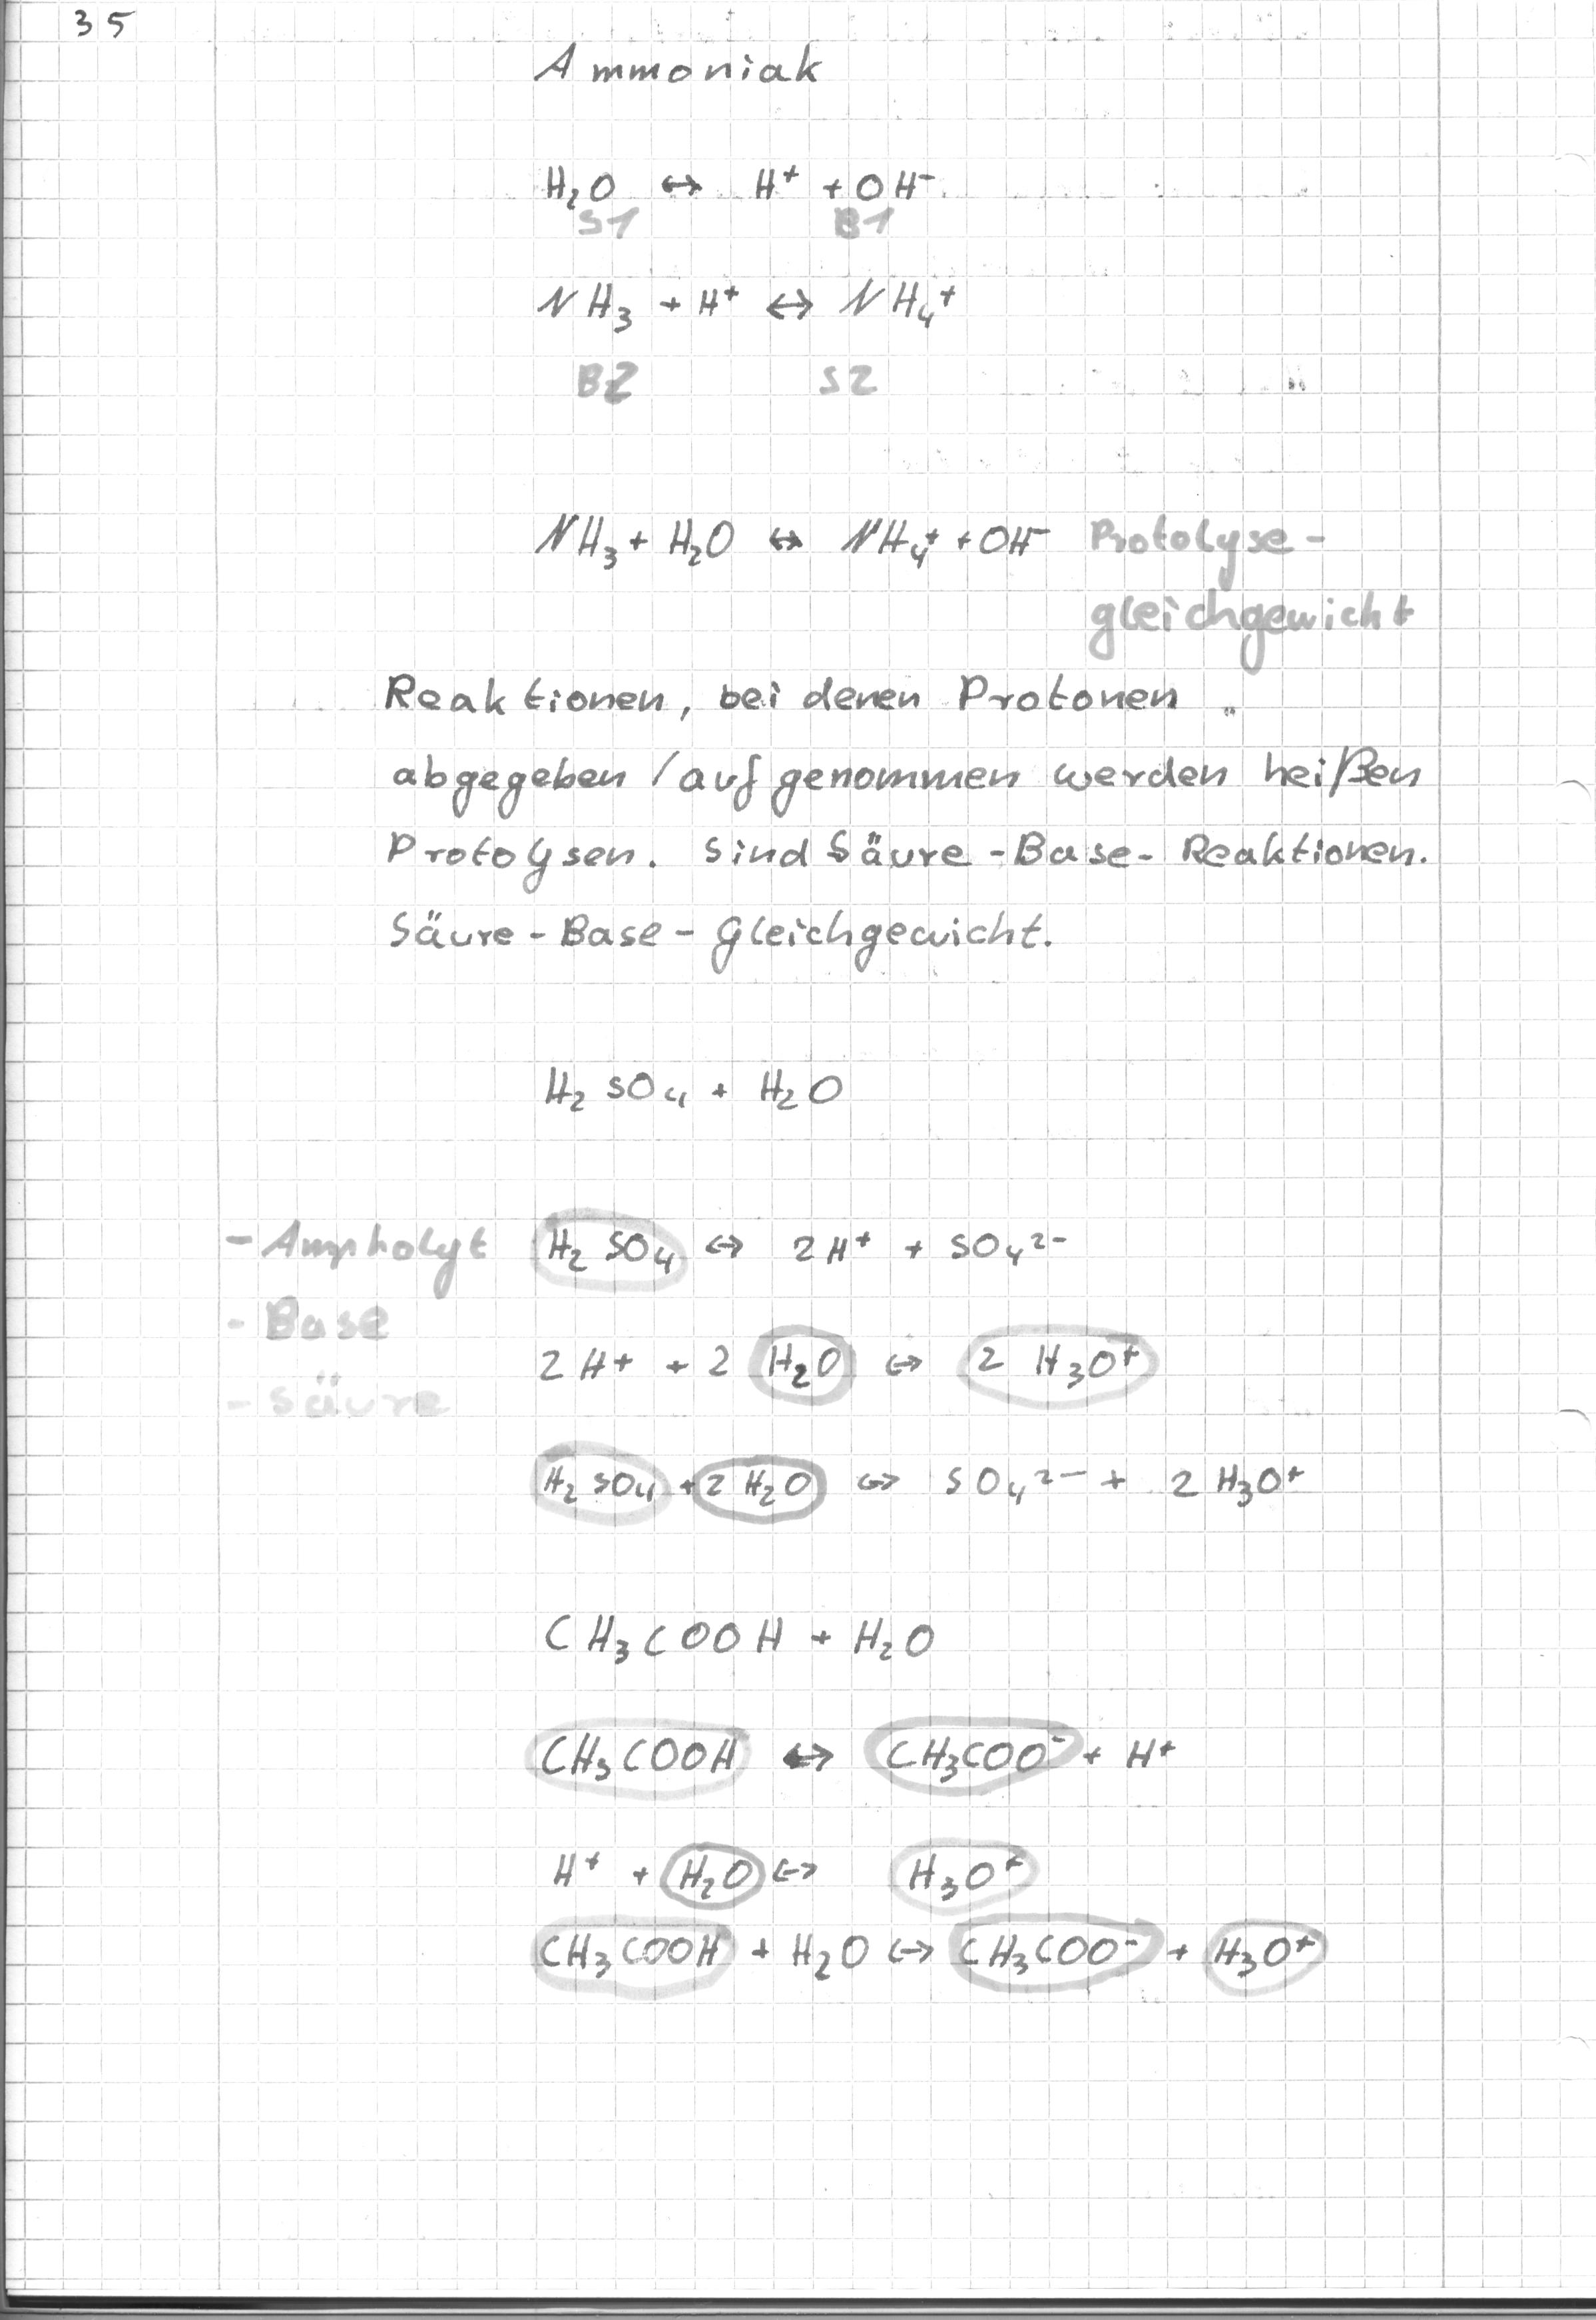 35
Ammoniak
H₂O ↔ H⁺ + OH⁻
S1 B1
NH₃ + H⁺ ↔ NH₄⁺
B2 S2
NH₃ + H₂O ↔ NH₄⁺ + OH⁻ Protolyse-
gleichgewicht
Reaktionen, bei denen Protonen
abgegeben / aufgenommen werden heißen
Protolysen. Sind Säure-Base-Reaktionen.
Säure-Base-Gleichgewicht.
H₂SO₄ + H₂O
- Ampholyt H₂SO₄ ↔ 2H⁺ + SO₄²⁻
- Base
2H⁺ + 2 H₂O ↔ 2 H₃O⁺
- Säure
H₂SO₄ + 2 H₂O ↔ SO₄²⁻ + 2 H₃O⁺
CH₃COOH + H₂O
CH₃COOH ↔ CH₃COO⁻ + H⁺
H⁺ + H₂O ↔ H₃O⁺
CH₃COOH + H₂O ↔ CH₃COO⁻ + H₃O⁺